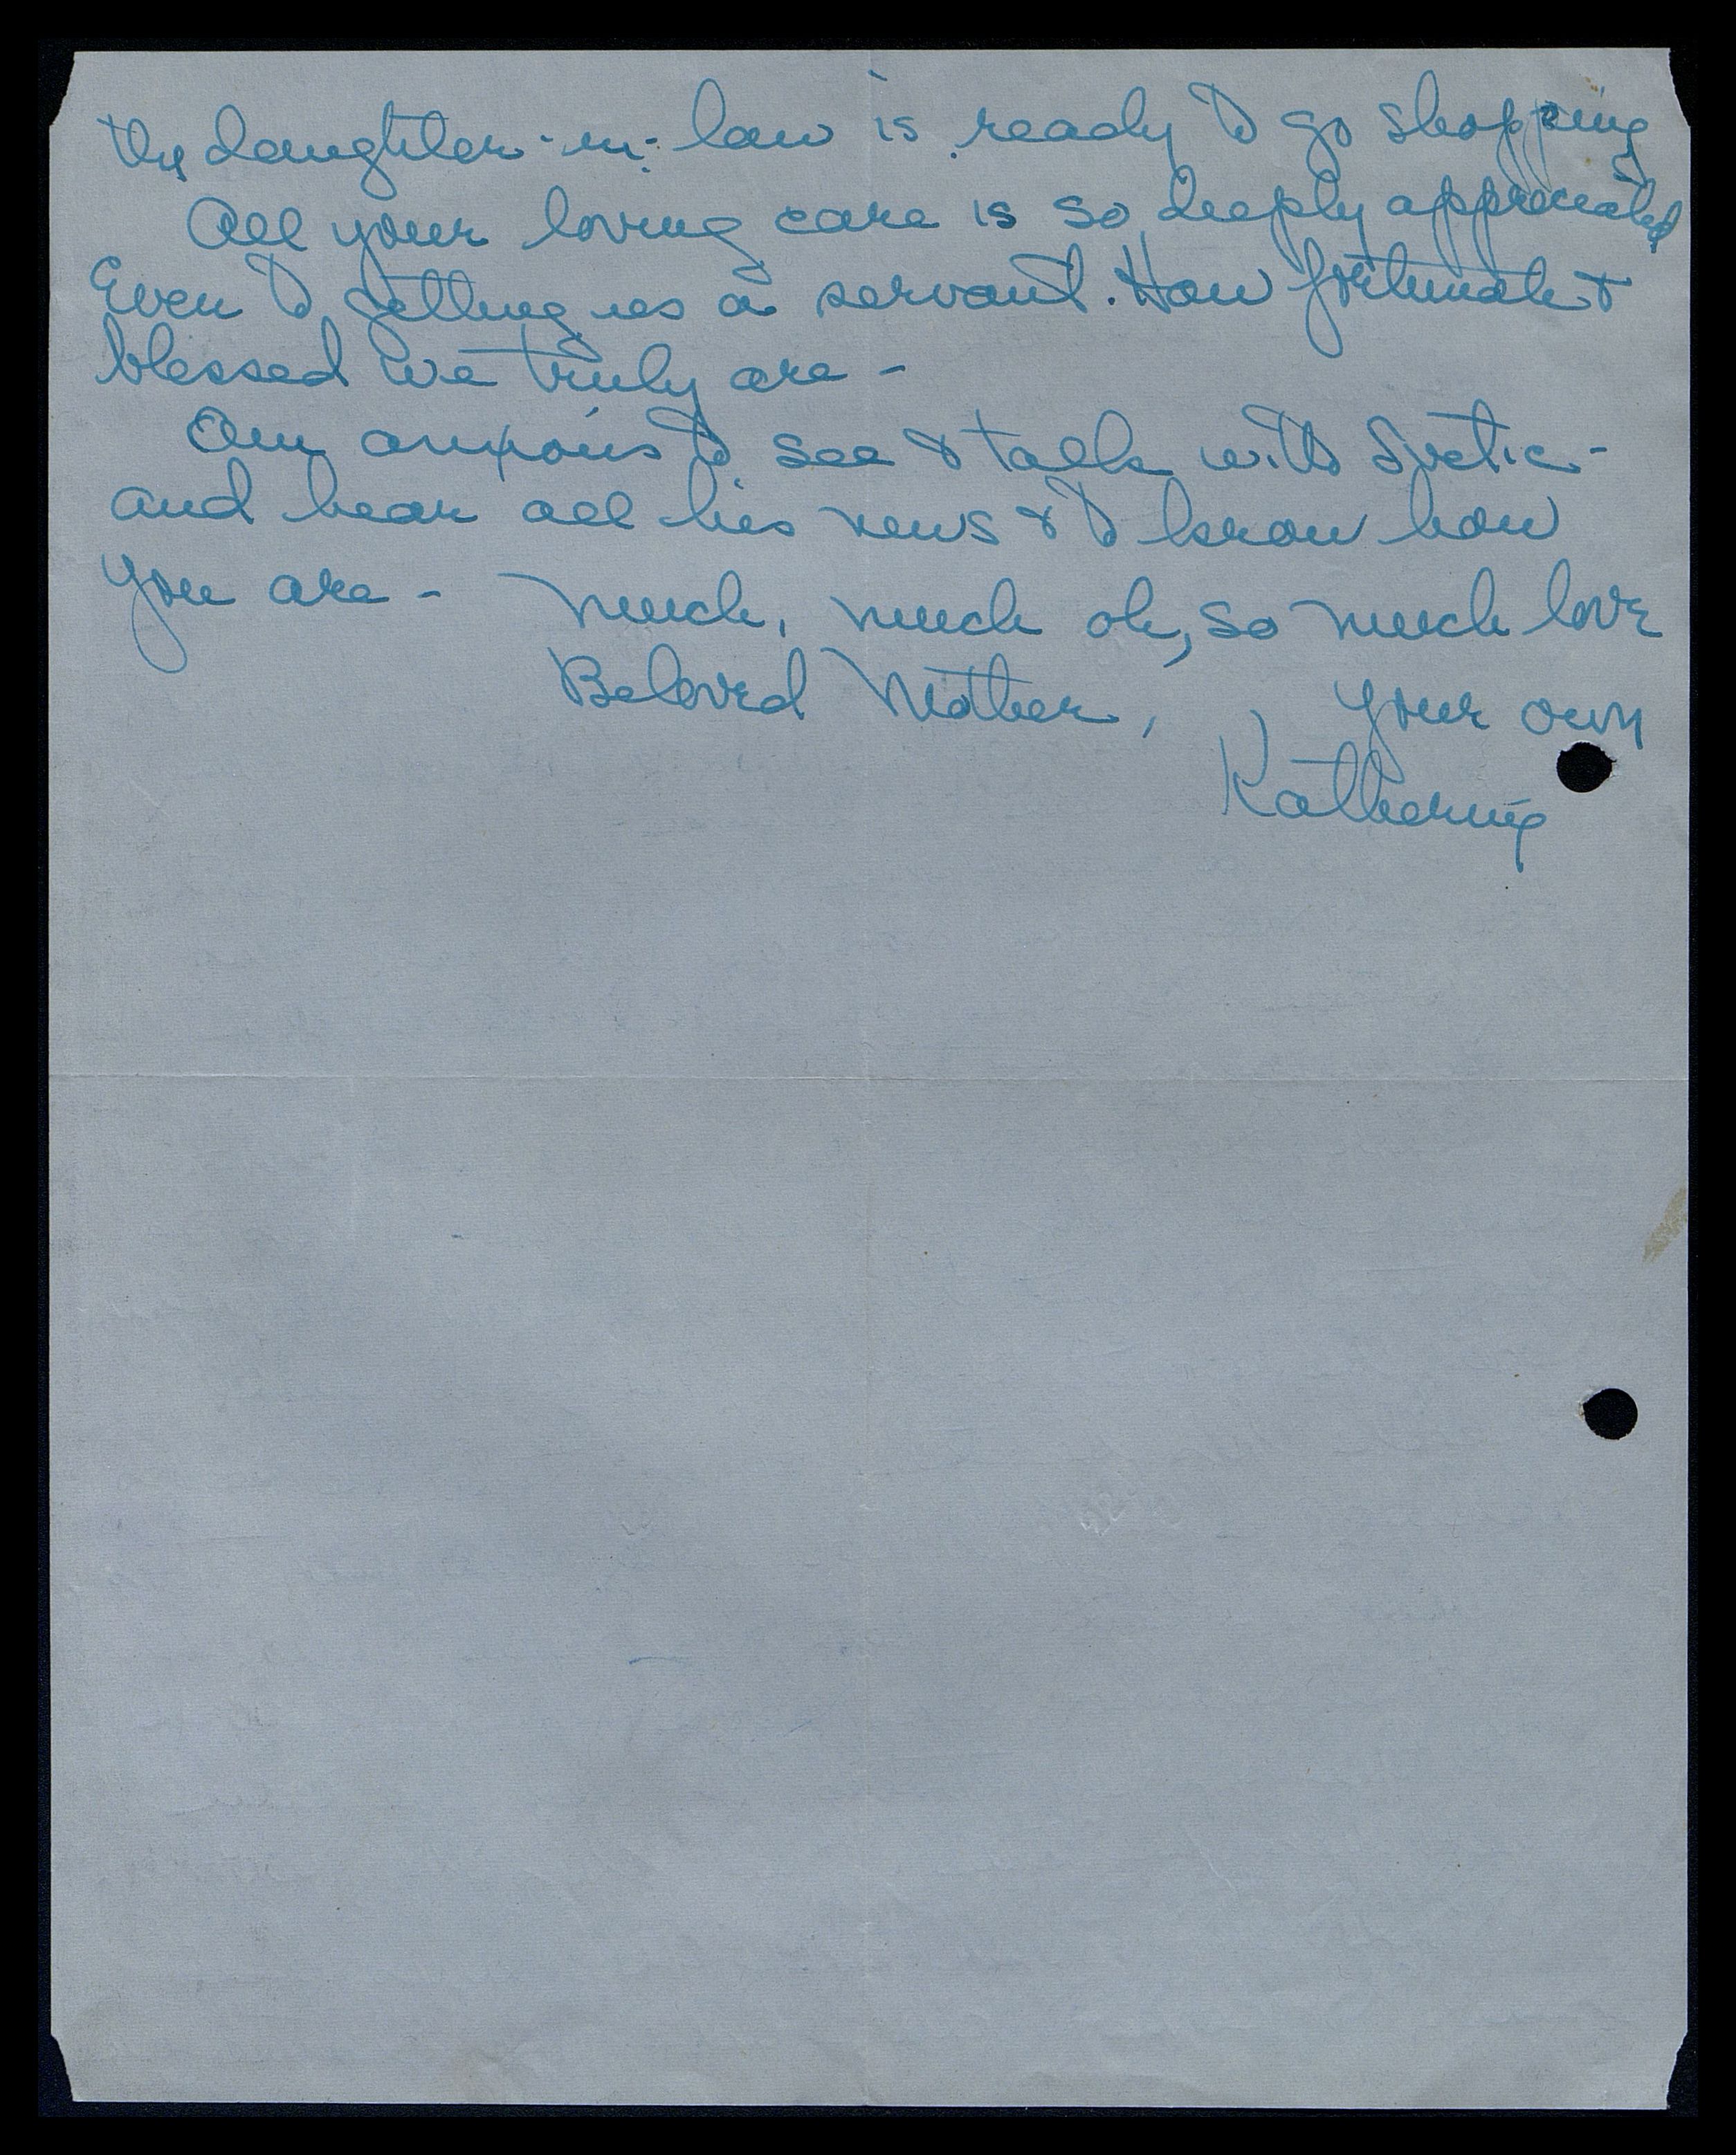 the daughter-in-law is ready to go shopping
All your loving care is so deeply appreciated
Even to getting us a servant. How fortunate &
blessed we truly are -
Am anxious to see & talk with -
and hear all his news & to know how
you are - Much, much oh, so much love
Beloved Mother, Your own
Katherine